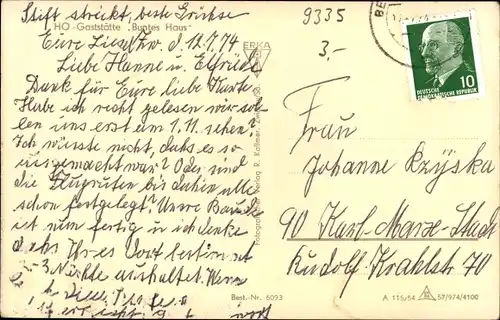 Stift streikt, beste Grüsse
HO-Gaststätte "Buntes Haus"
9335
3,-
Eure Liesel Zw. d. 18.7.74
Liebe Hanne u. Elfriede
Dank für Eure liebe Karte
Habe ich recht gelesen wir sol-
len uns erst am 1.11. sehen?
Ich wüsste nicht, dass es so
ausgemacht war? Oder sind
die Flugrouten bis dahin alle
schon festgelegt? Unsre Baude
ist nun fertig u. ich denke
dass Ihr es dort bestimmt
2-3 Nächte aushaltet. Wenn
DEUTSCHE
DEMOKRATISCHE REPUBLIK
10
Frau
Johanne
90 Karl-Marx-Stadt
Rudolf-Krahlstr 70
Best.-Nr. 6093
A 115/54 57/974/4100